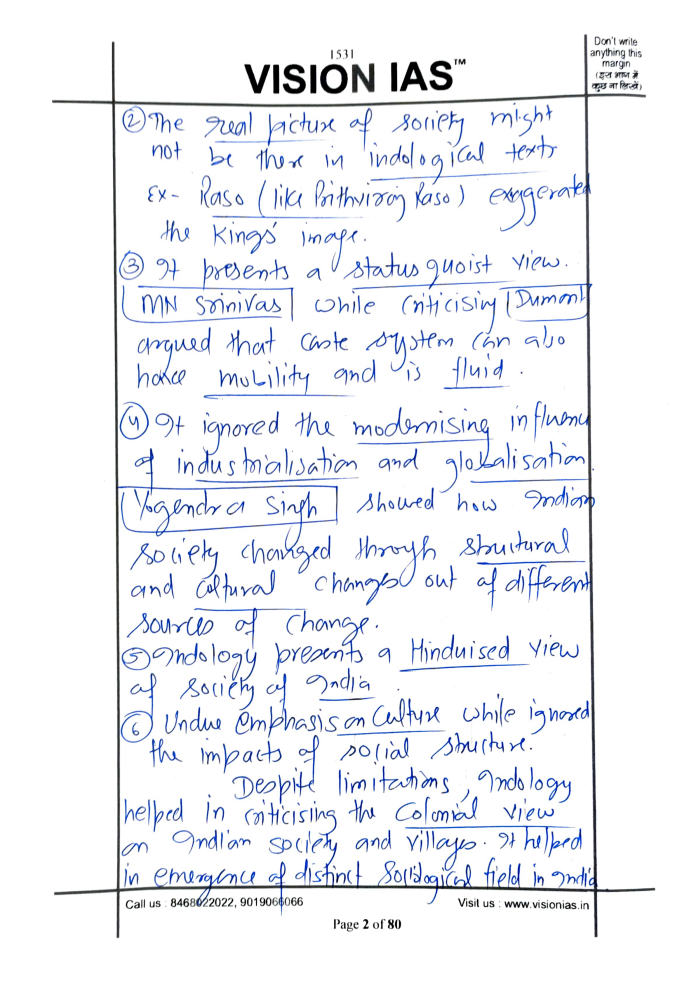 1531
VISION IAS™
Don't write
anything this
margin
(इस भाग में
कुछ ना लिखें)
② The real picture of society might
not be there in indological texts
Ex- Raso (like Prithviraj Raso) exagerated
the Kings' image.
③ It presents a status quoist view.
MN Srinivas while criticising Dumont
argued that caste system can also
have mobility and is fluid.
④ It ignored the modernising influence
of industrialisation and globalisation
Yogendra Singh showed how Indian
society changed through structural
and cultural changes out of different
sources of change.
⑤ Indology presents a Hinduised view
of society of India
⑥ Undue emphasis on culture while ignored
the impacts of social structure.
Despite limitations, Indology
helped in criticising the Colonial view
on Indian society and villages. It helped
in emergence of distinct sociological field in India
Call us : 8468022022, 9019066066
Visit us : www.visionias.in
Page 2 of 80